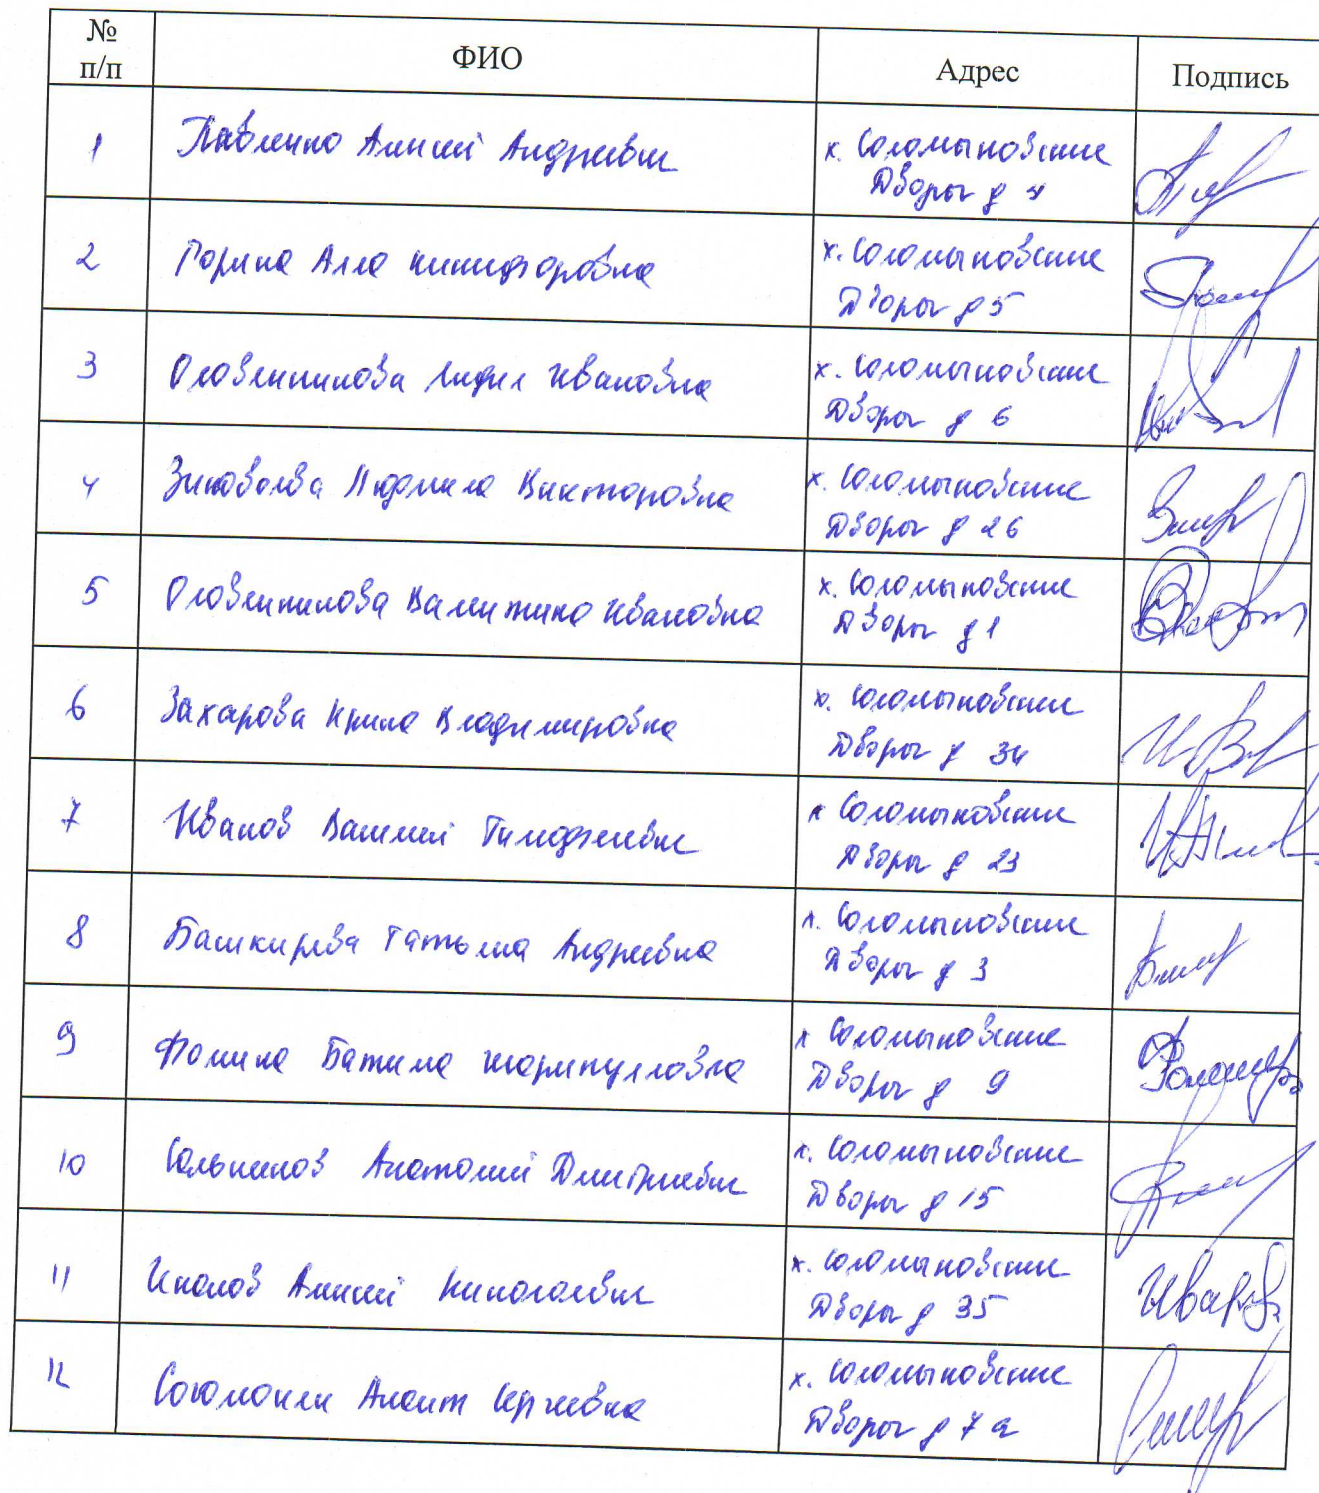 № п/п ФИО Адрес Подпись
1 Павленко Алексей Андреевич х. Соломыковские
Дворы д 4
2 Горина Алла Никифоровна х. Соломыковские
Дворы д 5
3 Оловенникова Лидия Ивановна х. Соломыковские
Дворы д 6
4 Зиновьева Людмила Викторовна х. Соломыковские
Дворы д 26
5 Оловенникова Валентина Ивановна х. Соломыковские
Дворы д 1
6 Захарова Ирина Владимировна х. Соломыковские
Дворы д 34
7 Иванов Василий Тимофеевич х Соломыковские
Дворы д 23
8 Башкирева Татьяна Андреевна х. Соломыковские
Дворы д 3
9 Фомина х Соломыковские
Дворы д 9
10 Сальников Анатолий Дмитриевич х. Соломыковские
Дворы д 15
11 Алексей Николаевич х. Соломыковские
Дворы д 35
12 Сергеевна х. Соломыковские
Дворы д 7а